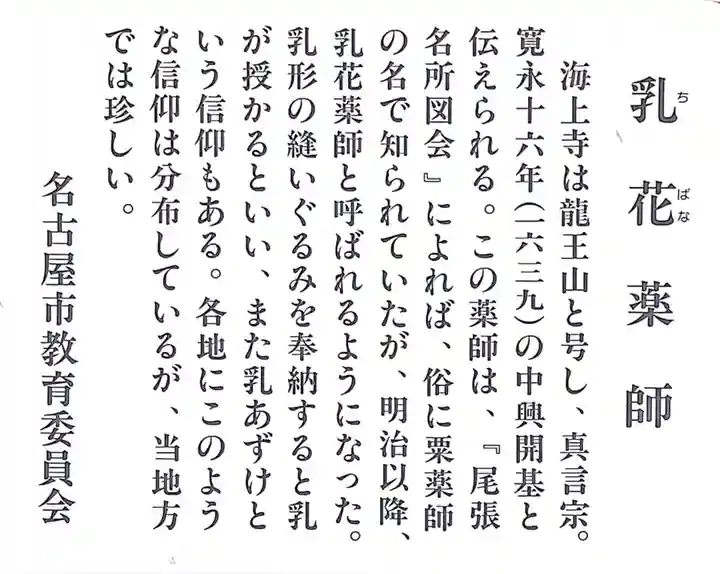 乳花薬師
ちばな
海上寺は龍王山と号し、真言宗。
寛永十六年(一六三九)の中興開基と
伝えられる。この薬師は、『尾張
名所図会』によれば、俗に粟薬師
の名で知られていたが、明治以降、
乳花薬師と呼ばれるようになった。
乳形の縫いぐるみを奉納すると乳
が授かるといい、また乳あずけと
いう信仰もある。各地にこのよう
な信仰は分布しているが、当地方
では珍しい。
名古屋市教育委員会